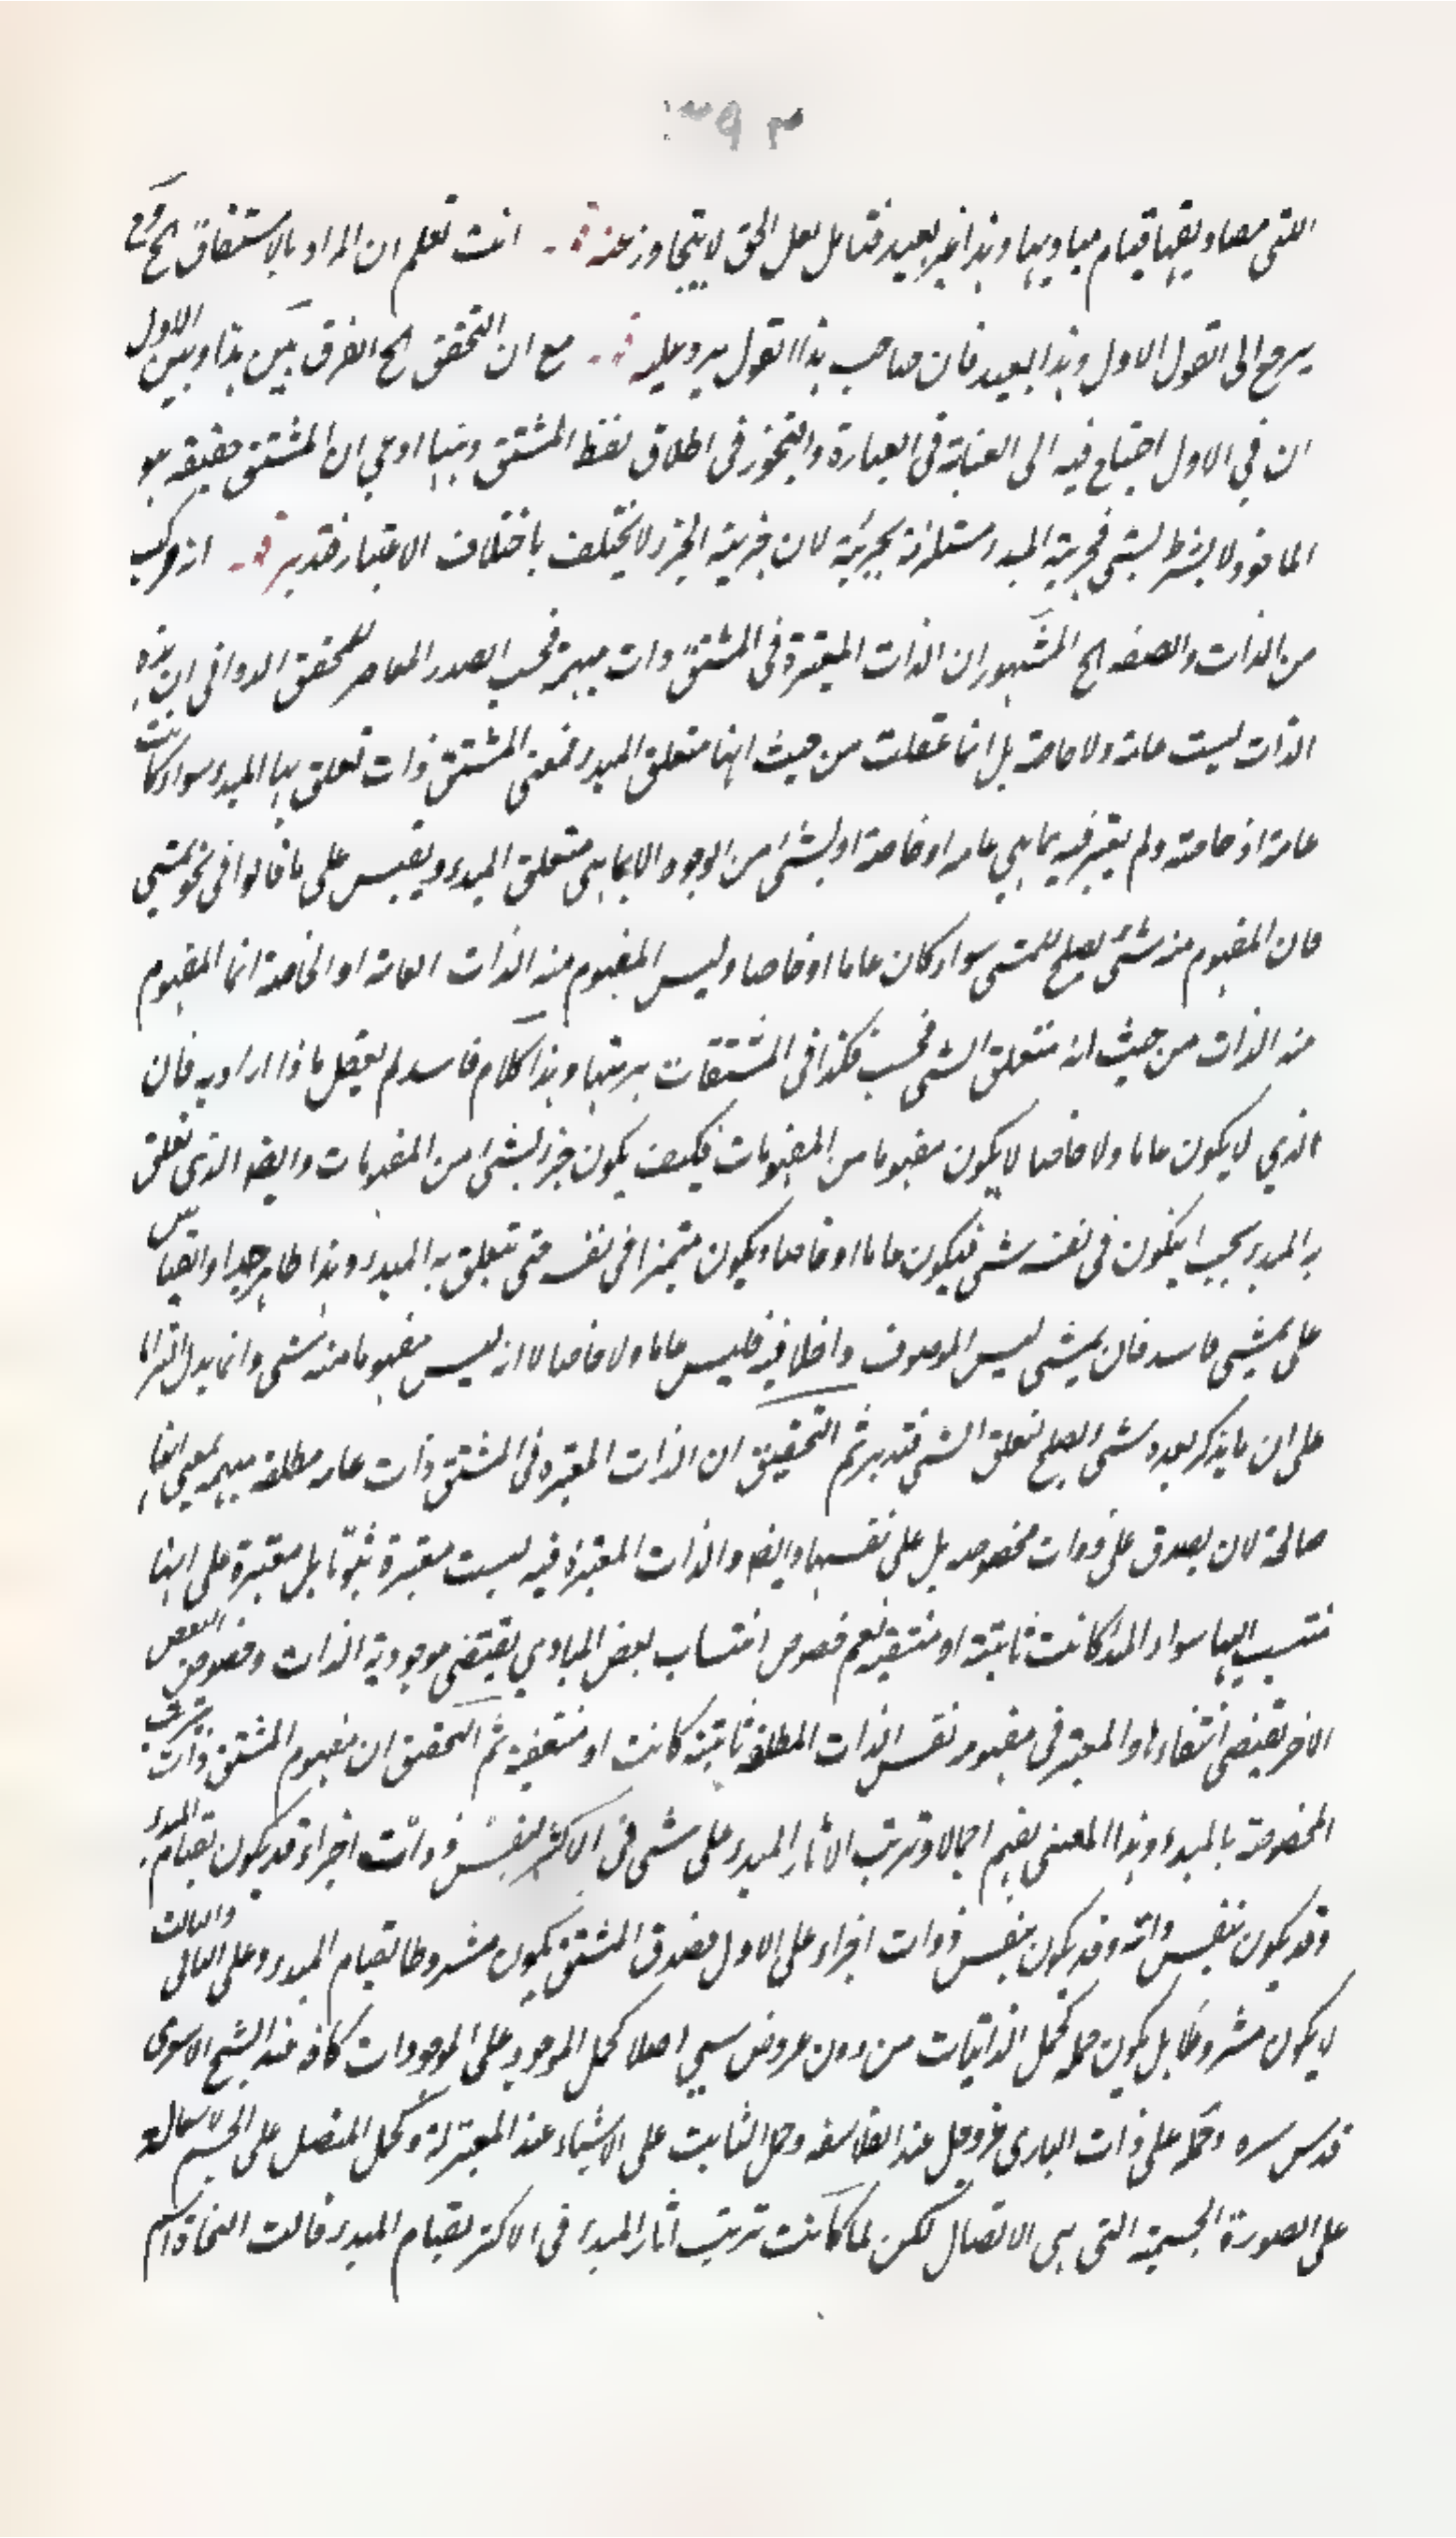 ٣٩٣
التى مصاديقها قيام مباديها وهذا غير بعيد فتامل لعل الحق لا يتجاوز عنه قوله انت تعلم ان المراد بالاستغراق الخ
يرجع الى القول الاول وهذا بعيد فان صاحب هذا القول يرد عليه قوله مع ان التحقق الخ الفرق بين هذا وبين الاول
ان فى الاول احتياج فيه الى العناية فى العبارة والتجوز فى اطلاق لفظ المشتق وههنا ادعى ان المشتق حقيقة هو
الماخوذ لا بشرط بشئ فجزئية المبدء مستلزمة لجزئية لان جزئية الجزء لا يختلف باختلاف الاعتبار فتدبر قوله انه مركب
من الذات والصفه الخ المشهور ان الذات المعتبرة فى المشتق ذات مبهمة فحسب الصدر المعاصر للمحقق الدوانى ان هذه
الذات ليست عامة ولا خاصة بل انما عقلت من حيث انها متعلق المبدء فمعنى المشتق ذات تعلق بها المبدء سواء كانت
عامة او خاصة ولم يعتبر فيه بما هى عامه او خاصة او بشئ من الوجوه الا بما هى متعلق المبدء ويقيس على ما قالوا فى نحو يمشى
فان المفهوم منه شئ يصلح للمشى سواء كان عاما او خاصا وليس المفهوم منه الذات العامة او الخاصة انما المفهوم
منه الذات من حيث انه متعلق المشى فحسب فكذا فى المشتقات برمتها وهذا كلام فاسد لم يعقل ماذا اراد به فان
الذي لا يكون عاما ولا خاصا لا يكون مفهوما من المفهومات فكيف يكون جزء لشئ من المفهومات وايضا الذى تعلق
به المبدء يجب ان يكون فى نفسه شئ فيكون عاما او خاصا ويكون متميزا فى نفسه حتى تعلق به المبدء وهذا ظاهر جدا والقياس
على يمشى فاسد فان يمشى ليس الموصوف داخلا فيه فليس عاما ولا خاصا لا انه ليس مفهوما منه شئ وانما يدل التزاما
على ان ما يذكر بعده شئ يصلح لتعلق المشى فتدبر ثم التحقيق ان الذات المعتبره فى المشتق ذات عامه مطلقه مبهمه بمعنى انها
صالحة لان يصدق على ذوات مخصوصه بل على نفسها وايضا والذات المعتبرة فيه ليست معتبرة ثبوتا بل معتبرة على انها
منتسب اليها سواء كانت ثابتة او منتفية نعم خصوص انتساب بعض المبادي يقتضى موجودية الذات وخصوص البعض
الاخر يقتضى انتفاءها والمعتبر فى مفهومه نفس الذات المطلقه ثابتة كانت او منتفية ثم التحقيق ان مفهوم المشتق ذات ترتب
المخصوصة بالمبدء وهذا المعنى يفهم اجمالا وترتب الاثار المبدء على شئ فى الاكثر بنفس ذوات اجزاء قد يكون بقيام المبدء
وقد يكون بنفس ذاته وقد يكون بنفس ذوات اجزاء على الاول فصدق المشتق يكون مشروطا بقيام المبدء وعلى الثانى والثالث
لا يكون مشروطا بل يكون حمله كحمل الذاتيات من دون عروض شئ اصلا كحمل الموجود على الموجودات كافة عند الشيخ الاشعرى
قدس سره وحمله على ذات البارى عزوجل عند الفلاسفه وحمل الثابت على الاشياء عند المعتزلة وكحمل المتصل على الجسم
على الصورة الجسمية التى هى الاتصال لكن لما كانت ترتب اثار المبدء فى الاكثر بقيام المبدء قالت النحاة اسم